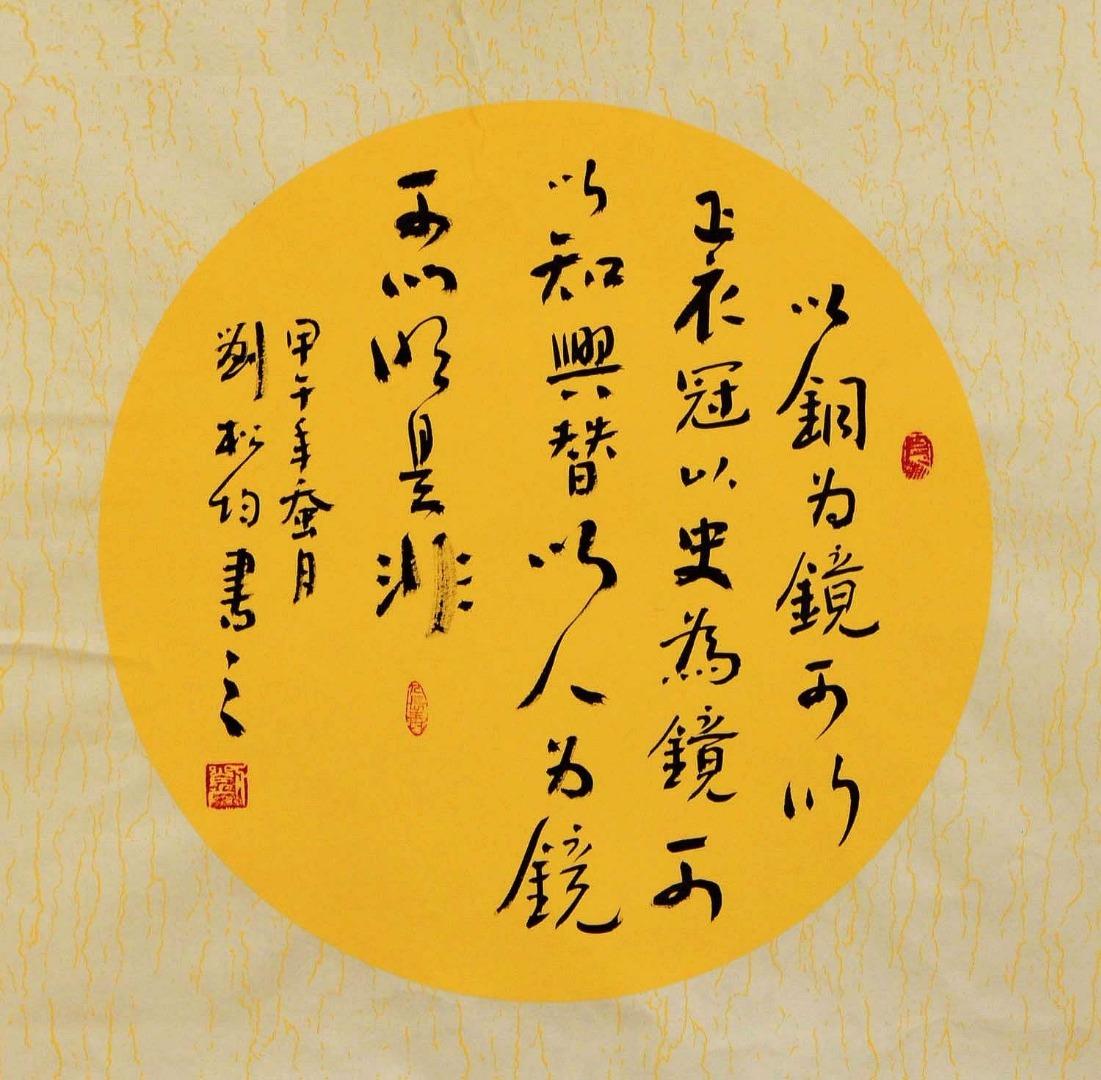 以銅为鏡可以
正衣冠以史為鏡可
以知興替以人为鏡
可以明是非
甲午年蚕月
劉松均書之